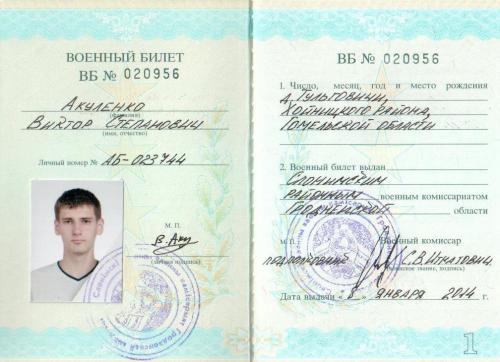 ВОЕННЫЙ БИЛЕТ
ВБ № 020956
Акуленко
(фамилия)
Виктор Степанович
(имя, отчество)
Личный номер № АБ-023744
М. П.
В.Аку
(личная подпись)
ВБ № 020956
1. Число, месяц, год и место рождения
д. Тульговичи,
Хойницкого района,
Гомельской области
2. Военный билет выдан
Слонимским
районным военным комиссариатом
Гродненской области
М. П. Военный комиссар
подполковник С.В.Игнатович
(воинское звание, подпись)
Дата выдачи « 8 » января 2014 г.
1